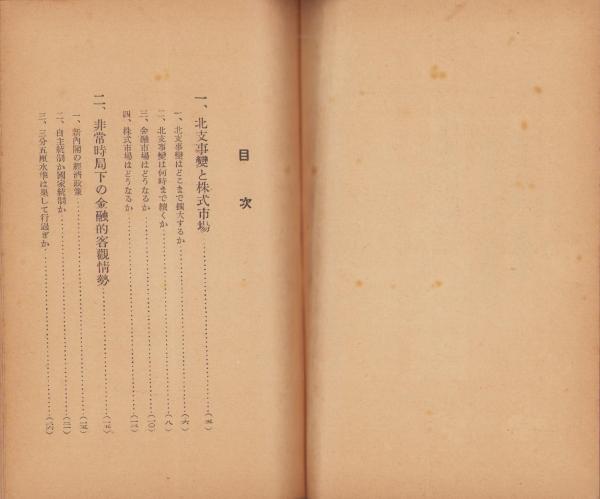 目次
一、北支事變と株式市場……(五)
一、北支事變はどこまで擴大するか……(六)
二、北支事變は何時まで續くか……(八)
三、金融市場はどうなるか……(一〇)
四、株式市場はどうなるか
二、非常時局下の金融的客觀情勢
一、新內閣の經濟政策
二、自主統制か國家統制か
三、三分五厘水準は果して行過ぎか